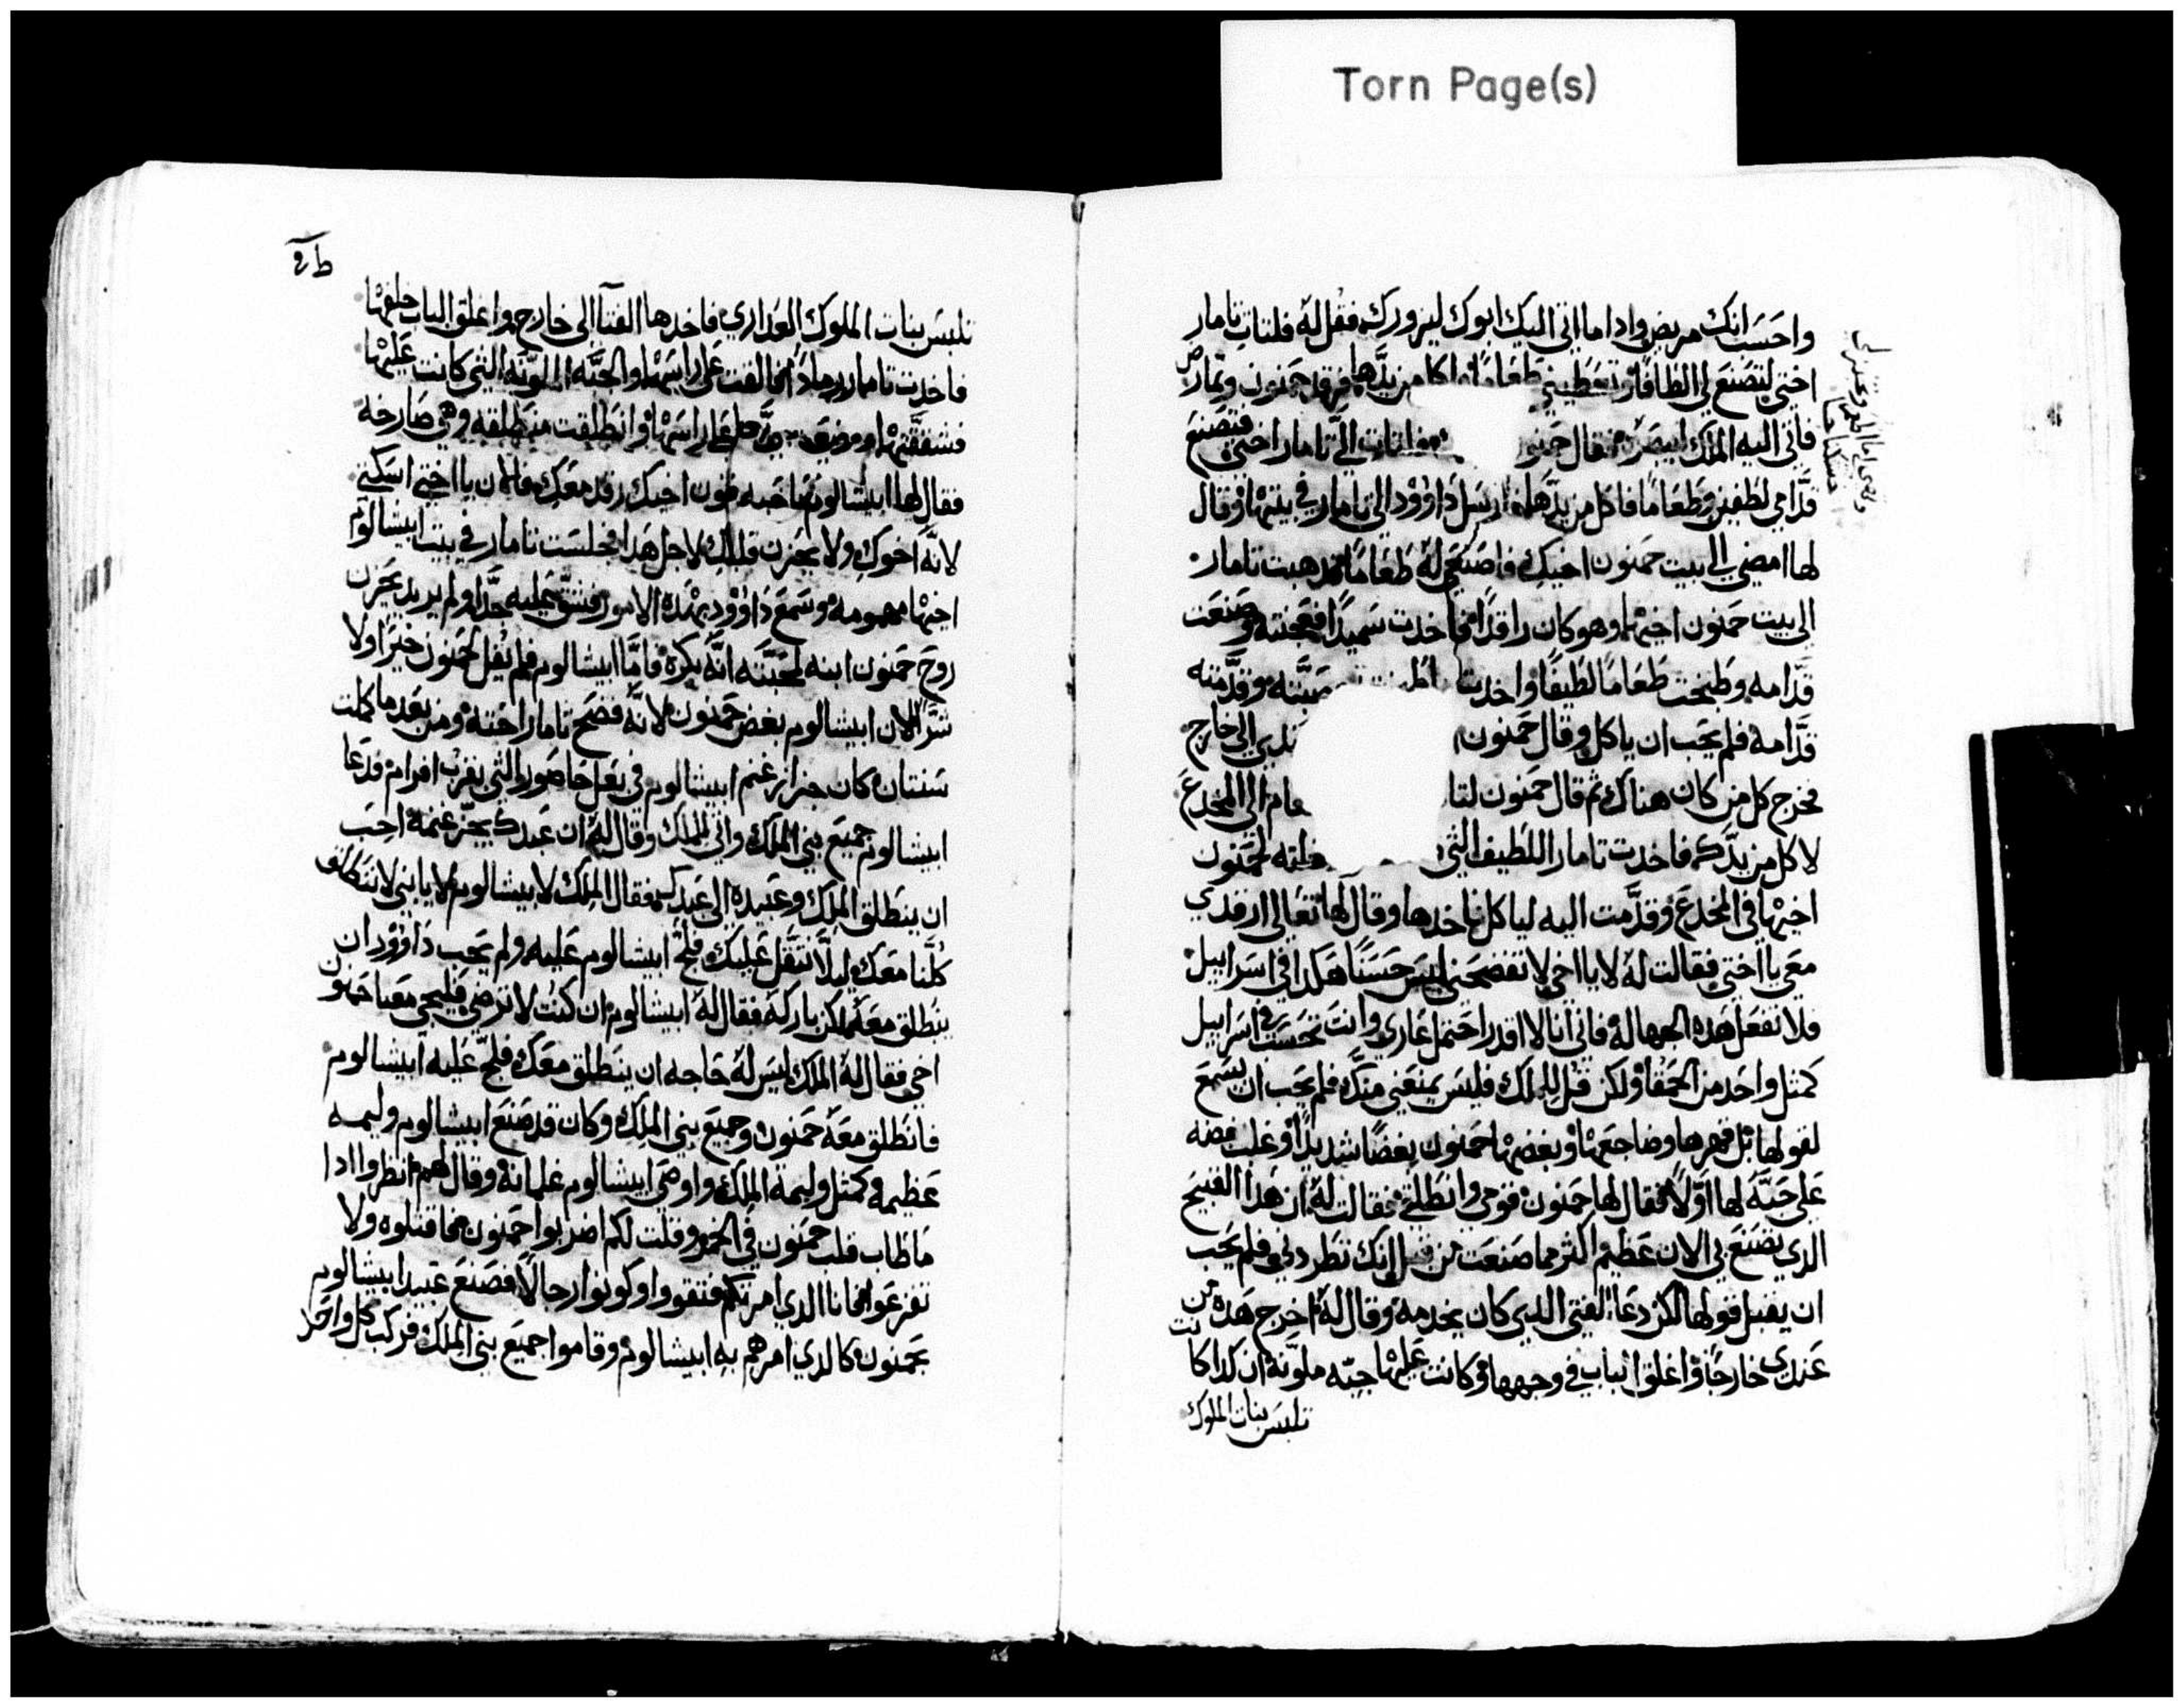 Torn Page(s)
واحسب انك مريض وادا ما اتى اليك ابوك ليزورك فقل له فلتات تامار
اختي لتصنع لي الطافا وتعطيني طعاما واكل من يدها فرقد حمنون وتمارض
فاتى اليه الملك ليبصره فقال حمنون تات الي تامار اختي فتصنع
قدامي لطفين وطعاما فاكل من يدها فارسل داوود الى تامار في بيتها وقال
لها امضي الى بيت حمنون اخيك فاصنعي له طعاما فدهبت تامار
الى بيت حمنون اخيها وهو كان راقدا فاخدت سميدا فعجنته وصنعت
قدامه وطبخت طعاما لطيفا واخدت صبته وقدمته
قدامه فلم يحب ان ياكل وقال حمنون الى خارج
فخرج كل من كان هناك ثم قال حمنون لتا عام الى المخدع
لاكل من يدك فاخدت تامار اللطيف التي لحمنون
اخيها في المخدع وقدمت اليه لياكل فاخدها وقال لها تعالي ارقدي
معي يا اختي فقالت له لا يا اخي لا تفضحني ليس حسنا هكدا في اسراييل
فلا تفعل هده الجهاله فاني انا لا اقدر احتمل عاري وانت تحسب في اسراييل
كمتل واحد من الحمقا ولكن قل للملك فليس يمنعني منك فلم يحب ان يسمع
لقولها بل قهرها وضاجعها وبغضها حمنون بغضا شديدا وغلب بغضه
على حبه لها اولا فقال لها حمنون قومي وانطلقي فقالت له ان هدا القبيح
الدي تصنع بي الان عظيم اكثر مما صنعت من قبل انك تطردني فلم يحب
ان يقبل قولها لكن دعا الفتى الدي كان يخدمه وقال له اخرج هده من
عندي خارجا واغلق الباب في وجهها وكانت عليها جبه ملونه ان كدا كانت
تلبس بنات الملوك
تلبس بنات الملوك العداري فاخدها الفتا الى خارج واغلق الباب خلفها
فاخدت تامار رمادا فالقت على راسها والجبه الملونه التي كانت عليها
فشققتها ووضعت يدها على راسها وانطلقت منطلقه وهي صارخه
فقال لها ابيشالوم حمنون اخيك رقد معك فالان يا اختي اسكتي
لانه اخوك ولا يحزن قلبك لاجل هدا فجلست تامار في بيت ابيشالوم
اخيها مهمومه وسمع داوود بهده الامور فشق عليه جدا ولم يريد يحزن
روح حمنون ابنه لمحبته انه بكره فاما ابيشالوم فلم يقل لحمنون خيرا ولا
شرا لان ابيشالوم بغض حمنون لانه فضح تامار اخته ومن بعد ما كملت
سنتان كان جزاز غنم ابيشالوم في بعل حاصور التي بقرب افرام فدعا
ابيشالوم جميع بني الملك واتى الملك وقال له ان عبدك يجز غنمه احب
ان ينطلق الملك وعبيده الى عبدك فقال الملك لابيشالوم لا يا بني لا ننطلق
كلنا معك ليلا نتقل عليك فلح ابيشالوم عليه ولم يحب داوود ان
ينطلق معه لكن باركه فقال له ابيشالوم ان كنت لا ترضى فليجي معنا حمنون
اخي فقال له الملك ليس له حاجه ان ينطلق معك فلح عليه ابيشالوم
فانطلق معه حمنون وجميع بني الملك وكان قد صنع ابيشالوم وليمه
عظيمه كمتل وليمة الملك واوصى ابيشالوم غلمانه وقال لهم انظروا ادا
ما طاب قلب حمنون في الخمر وقلت لكم اضربوا حمنون فاقتلوه ولا
تفزعوا فانا الدي امرتكم فتقووا وكونوا رجالا فصنع عبيد ابيشالوم
بحمنون كالدي امرهم به ابيشالوم وقاموا جميع بني الملك فركب كل واحد